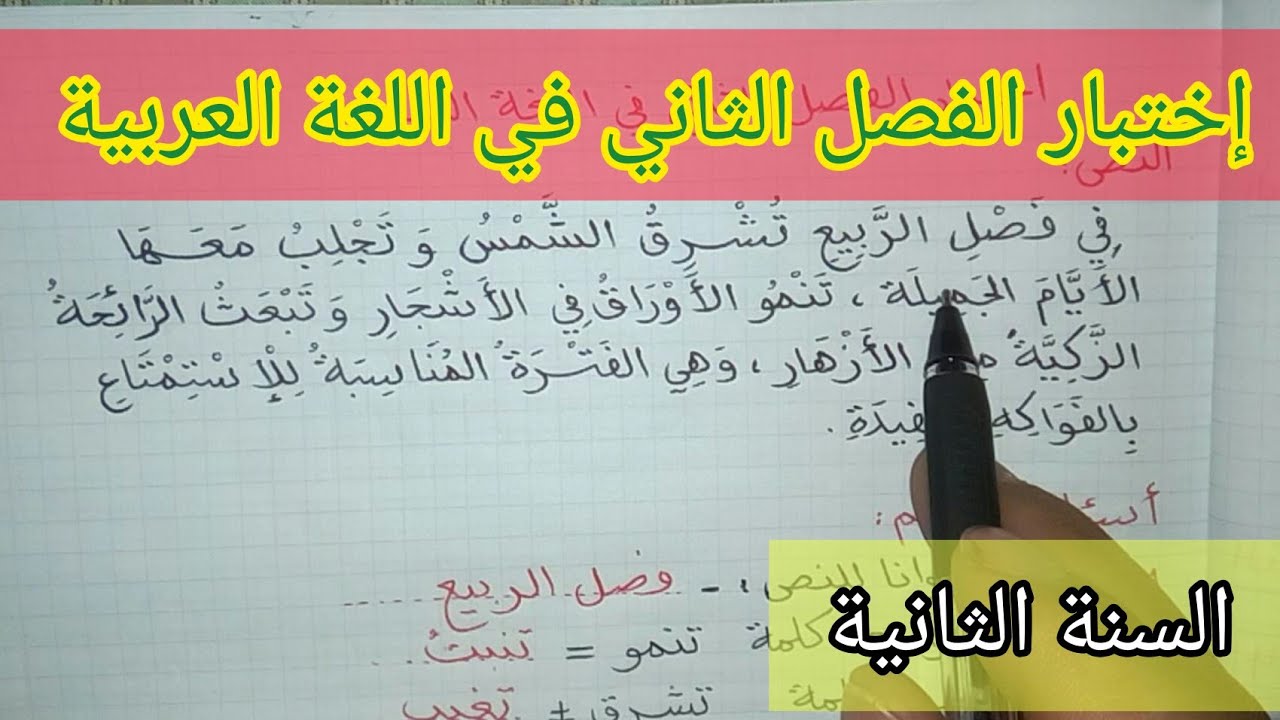 إختبار الفصل الثاني في اللغة العربية
النص:
فِي فَصْلِ الرَّبِيعِ تُشْرِقُ الشَّمْسُ وَ تَجْلِبُ مَعَهَا
الأَيَّامَ الجَمِيلَة ، تَنْمُو الأَوْرَاقُ فِي الأَشْجَارِ وَ تَبْعَثُ الرَّائِحَةُ
الزَّكِيَّةُ الأَزْهَارِ ، وَهِي الفَتْرَةُ المُنَاسِبَةُ لِلْإسْتِمْتَاعِ
بِالفَوَاكِهِ
النص : - فصل الربيع
كلمة تنمو = تنبتُ
تشرق ≠ تغيب
السنة الثانية